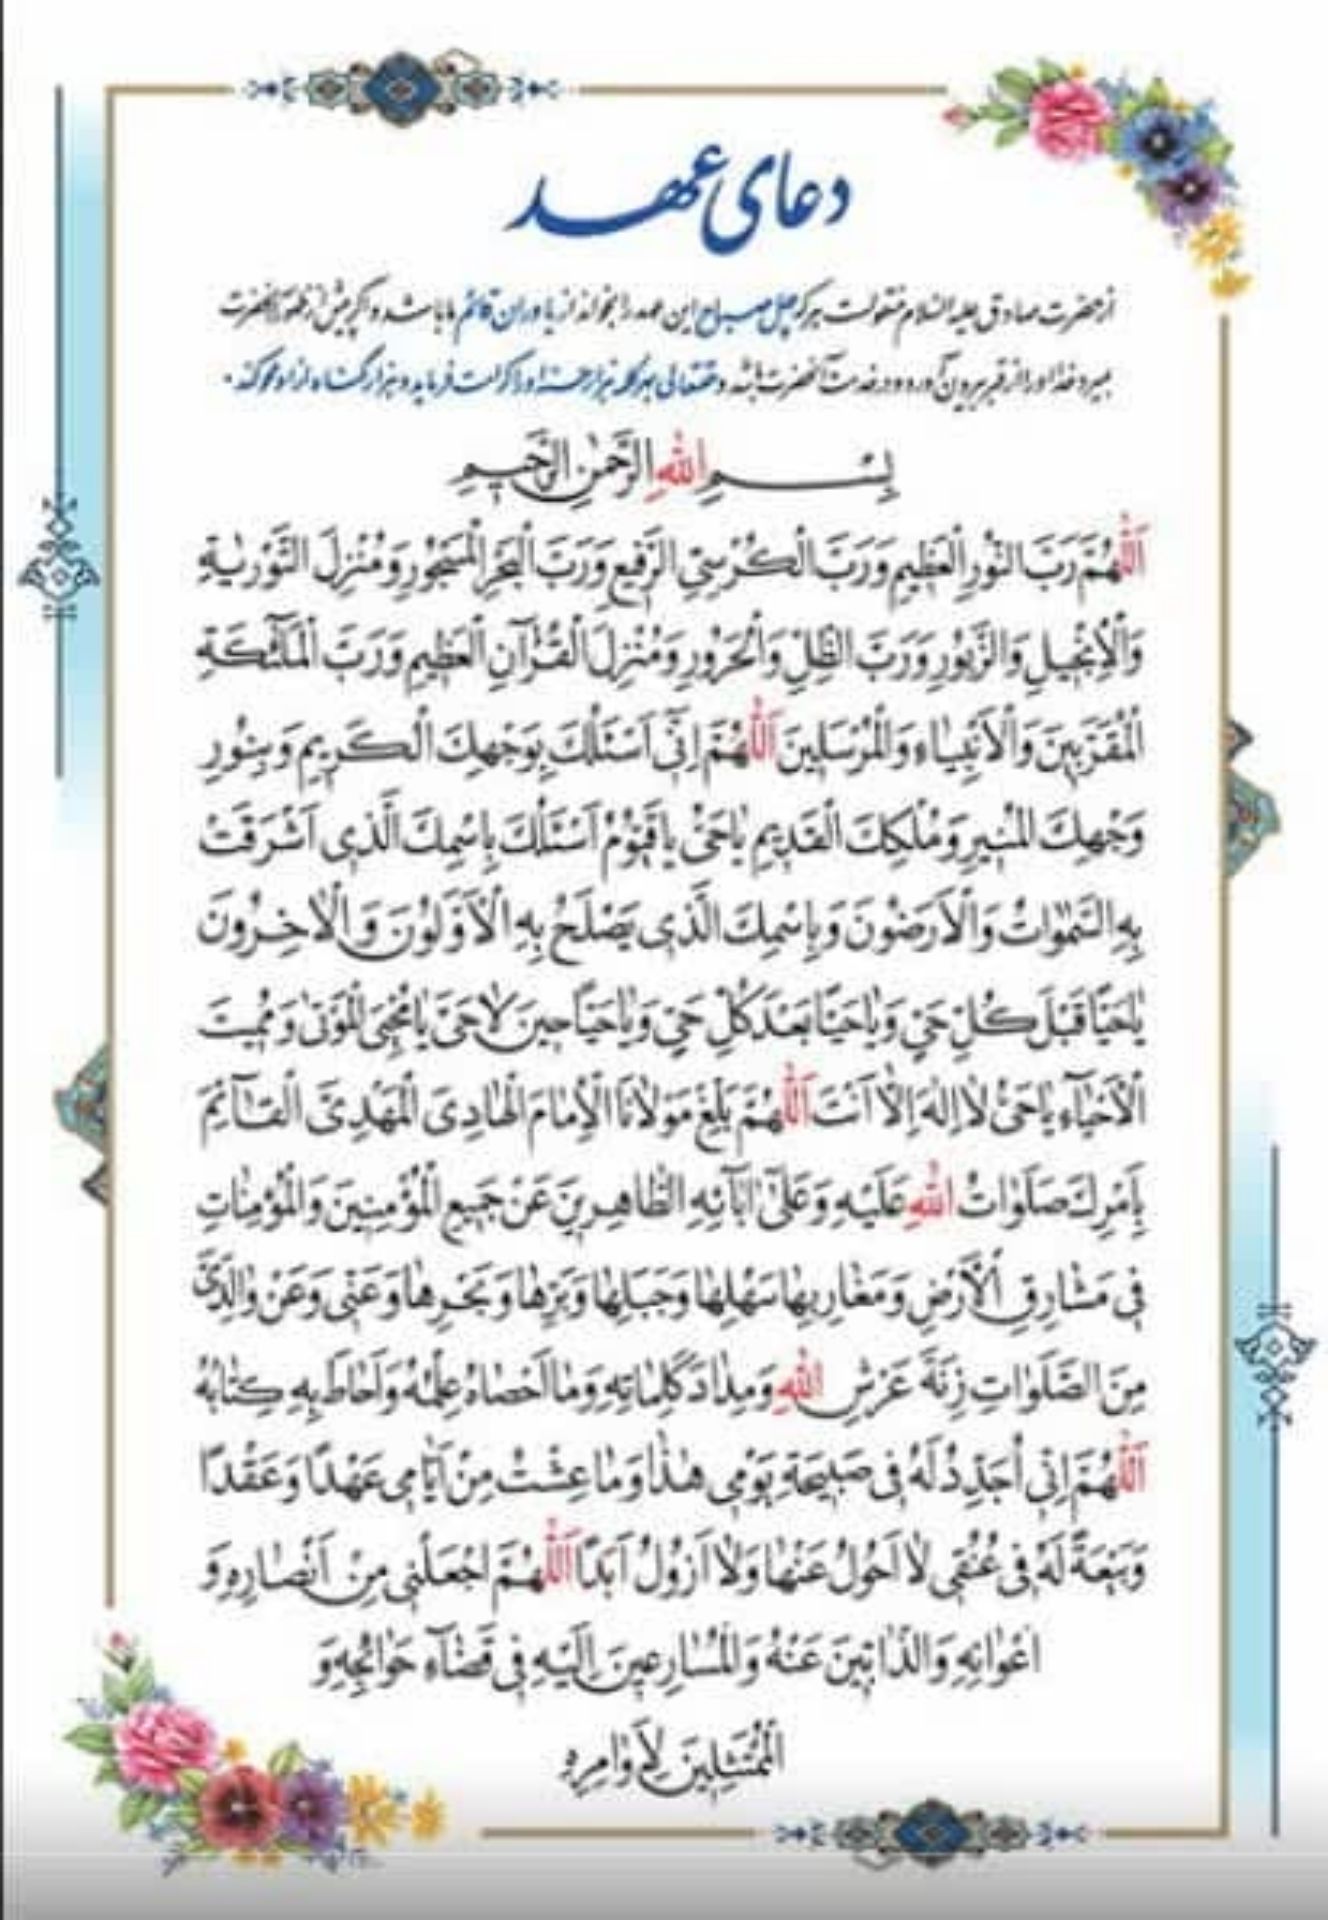 دعای عهد
از حضرت صادق علیه السلام منقولست هرکه چهل صباح این عهد را بخواند از یاوران قائم ما باشد و اگر پیش از ظهور آنحضرت
بمیرد خدا او را از قبر بیرون آورد و در خدمت آنحضرت باشد و حقتعالی بهر کلمه هزار حسنه او را کرامت فرماید و هزار گناه از او محو کند.
بِسْمِ اللهِ الرَّحْمٰنِ الرَّحیمِ
اَللّٰهُمَّ رَبَّ النُّورِ الْعَظیمِ وَرَبَّ الْكُرْسِیِّ الرَّفیعِ وَرَبَّ الْبَحْرِ الْمَسْجُورِ وَمُنْزِلَ التَّوْرٰیةِ
وَالْاِنْجیلِ وَالزَّبُورِ وَرَبَّ الظِّلِّ وَالْحَرُورِ وَمُنْزِلَ الْقُرْآنِ الْعَظیمِ وَرَبَّ الْمَلٰٓئِكَةِ
الْمُقَرَّبینَ وَالْاَنْبِیٰاءِ وَالْمُرْسَلینَ اَللّٰهُمَّ اِنّیٓ اَسْئَلُكَ بِوَجْهِكَ الْكَریمِ وَبِنُورِ
وَجْهِكَ الْمُنیرِ وَمُلْكِكَ الْقَدیمِ یٰاحَیُّ یٰاقَیُّومُ اَسْئَلُكَ بِاسْمِكَ الَّذی اَشْرَقَتْ
بِهِ السَّمٰوٰاتُ وَالْاَرَضُونَ وَبِاسْمِكَ الَّذی یَصْلَحُ بِهِ الْاَوَّلُونَ وَالْاٰخِرُونَ
یٰاحَیًّا قَبْلَ كُلِّ حَیٍّ وَیٰاحَیًّا بَعْدَ كُلِّ حَیٍّ وَیٰاحَیًّا حینَ لٰاحَیَّ یٰامُحْیِیَ الْمَوْتیٰ وَمُمیتَ
الْاَحْیٰآءِ یٰاحَیُّ لٰا اِلٰهَ اِلّٰا اَنْتَ اَللّٰهُمَّ بَلِّغْ مَوْلٰانَا الْاِمٰامَ الْهٰادِیَ الْمَهْدِیَّ الْقٰآئِمَ
بِاَمْرِكَ صَلَوٰاتُ اللهِ عَلَیْهِ وَعَلیٰٓ اٰبٰآئِهِ الطّٰاهِرینَ عَنْ جَمیعِ الْمُؤْمِنینَ وَالْمُؤْمِنٰاتِ
فی مَشٰارِقِ الْاَرْضِ وَمَغٰارِبِهٰا سَهْلِهٰا وَجَبَلِهٰا وَبَرِّهٰا وَبَحْرِهٰا وَعَنّی وَعَنْ وٰالِدَیَّ
مِنَ الصَّلَوٰاتِ زِنَةَ عَرْشِ اللهِ وَمِدٰادَ كَلِمٰاتِهِ وَمٰا اَحْصٰاهُ عِلْمُهُ وَاَحٰاطَ بِهِ كِتٰابُهُ
اَللّٰهُمَّ اِنّی اُجَدِّدُ لَهُ فی صَبیحَةِ یَوْمی هٰذٰا وَمٰا عِشْتُ مِنْ اَیّٰامی عَهْدًا وَعَقْدًا
وَبَیْعَةً لَهُ فی عُنُقی لٰا اَحُولُ عَنْهٰا وَلٰا اَزُولُ اَبَدًا اَللّٰهُمَّ اجْعَلْنی مِنْ اَنْصٰارِهِ وَ
اَعْوٰانِهِ وَالذّٰابّینَ عَنْهُ وَالْمُسٰارِعینَ اِلَیْهِ فی قَضٰآءِ حَوٰائِجِهِ وَ
الْمُمْتَثِلینَ لِاَوٰامِرِهِ